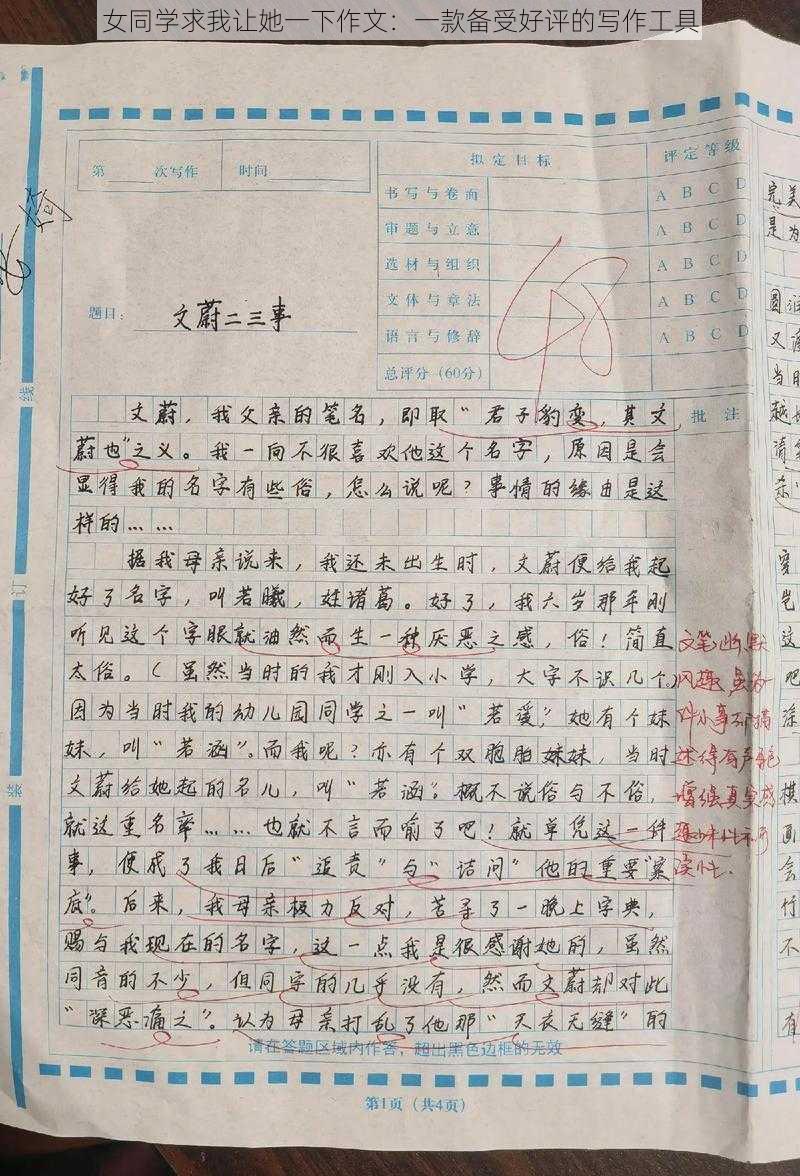 女同学求我让她一下作文：一款备受好评的写作工具
第 次写作 时间
拟定目标 评定等级
书写与卷面 A B C D
审题与立意 A B C D
选材与组织 A B C D
文体与章法 A B C D
语言与修辞 A B C D
总评分（60分）
48
题目：文蔚二三事
批注
文蔚，我父亲的笔名，即取“君子豹变，其文
蔚也”之义。我一向不很喜欢他这个名字，原因是会
显得我的名字有些俗，怎么说呢？事情的缘由是这
样的……
据我母亲说来，我还未出生时，文蔚便给我起
好了名字，叫若曦，姓诸葛。好了，我六岁那年刚
听见这个字眼就油然而生一种厌恶之感，俗！简直
太俗。（虽然当时的我才刚入小学，大字不识几个。）
因为当时我的幼儿园同学之一叫“若瑗”，她有个妹
妹，叫“若涵”。而我呢？亦有个双胞胎妹妹，当时
文蔚给她起的名儿，叫“若涵”。概不说俗与不俗，
就这重名率……也就不言而喻了吧！就单凭这一件
事，便成了我日后“追责”与“诘问”他的重要“案
底”。后来，我母亲极力反对，苦寻了一晚上字典，
赐与我现在的名字，这一点我是很感谢她的，虽然
同音的不少，但同字的几乎没有，然而文蔚却对此
“深恶痛之”。认为母亲打乱了他那“天衣无缝”的
文笔幽默
风趣，虽为
件小事却描
述得有声色
增强真实感
趣味性和可
读性.
请在答题区域内作答，超出黑色边框的无效
第1页（共4页）
线
订
装
完美
是为
圆润
又
当时
越
清
变
岂
这
吧
涂
棋
画
会
竹
不
有